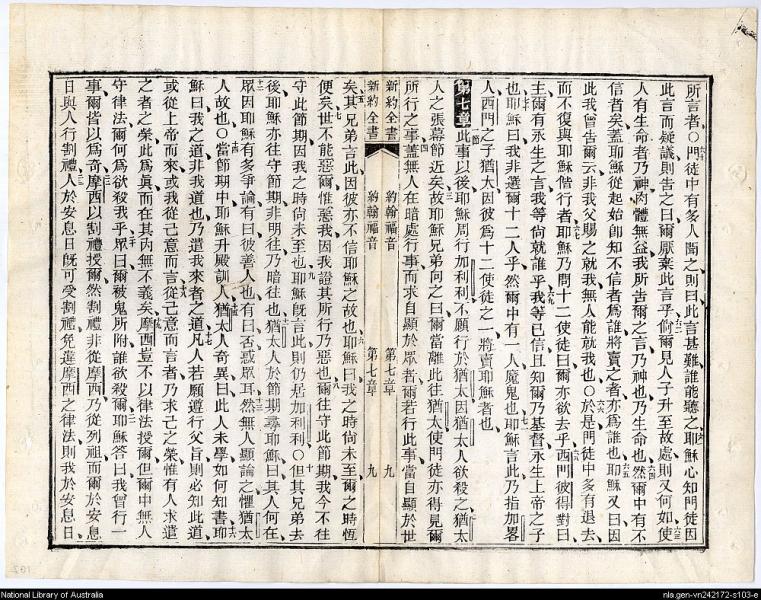 所言者○門徒中有多人聞之則曰此言甚難誰能聽之耶穌心知門徒因
此言而疑議則吿之曰爾厭棄此言乎倘爾見人子升至故處則又何如使
人有生命者乃神肉體無益我所吿爾之言乃神也乃生命也然爾中有不
信者矣蓋耶穌從起始卽知不信者爲誰將賣之者亦爲誰也耶穌又曰因
此我曾吿爾云非我父賜之就我無人能就我也○於是門徒中多有退去
而不復與耶穌偕行者耶穌乃問十二使徒曰爾亦欲去乎西門彼得對曰
主爾有永生之言我等尙就誰乎我等已信且知爾乃基督永生上帝之子
也耶穌曰我非選爾十二人乎然爾中有一人魔鬼也耶穌言此乃指加畧
人西門之子猶大因彼爲十二使徒之一將賣耶穌者也
第七章此事以後耶穌周行加利利不願行於猶太因猶太人欲殺之猶太
人之張幕節近矣故耶穌兄弟向之曰爾當離此往猶太使門徒亦得見爾
所行之事蓋無人在暗處行事而求自顯於眾者爾若行此事當自顯於世
新約全書 約翰福音 第七章 九
新約全書 約翰福音 第七章 九
矣其兄弟言此因彼亦不信耶穌之故也耶穌曰我之時尙未至爾之時恆
便矣世不能惡爾惟惡我因我證其所行乃惡也爾往守此節期我今不往
守此節期因我之時尙未至也耶穌旣言此則仍居加利利○但其兄弟去
後耶穌亦往守節期非明往乃暗往也猶太人於節期尋耶穌曰其人何在
眾因耶穌有多爭論有曰彼善人也有曰否惑眾耳然無人顯論之懼猶太
人故也○當節期中耶穌升殿訓人猶太人奇異曰此人未學如何知書耶
穌曰我之道非我道也乃遣我來者之道凡人若願遵行父旨則必知此道
或從上帝而來或我從己意而言從己意而言者乃求己之榮惟有人求遣
之者之榮此爲眞而在其內無不義矣摩西豈不以律法授爾但爾中無人
守律法爾何爲欲殺我乎眾曰爾被鬼所附誰欲殺爾耶穌答曰我曾行一
事爾皆以爲奇摩西以割禮授爾然割禮非從摩西乃從列祖而爾於安息
日與人行割禮人於安息日旣可受割禮免違摩西之律法則我於安息日
National Library of Australia
nla.gen-vn242172-s103-e